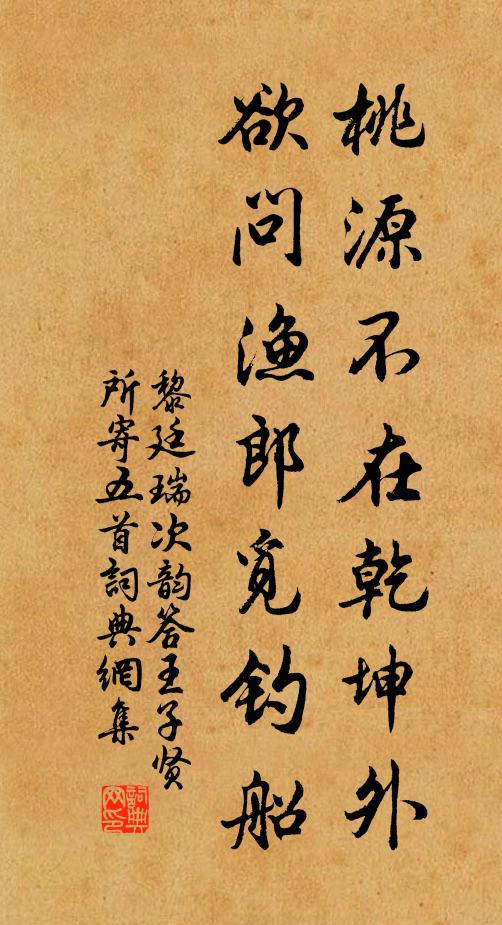 桃源不在乾坤外
欲问渔郎觅钓船
黎廷瑞次韵答王子贤
所寄五首詞典網集
詞典网印